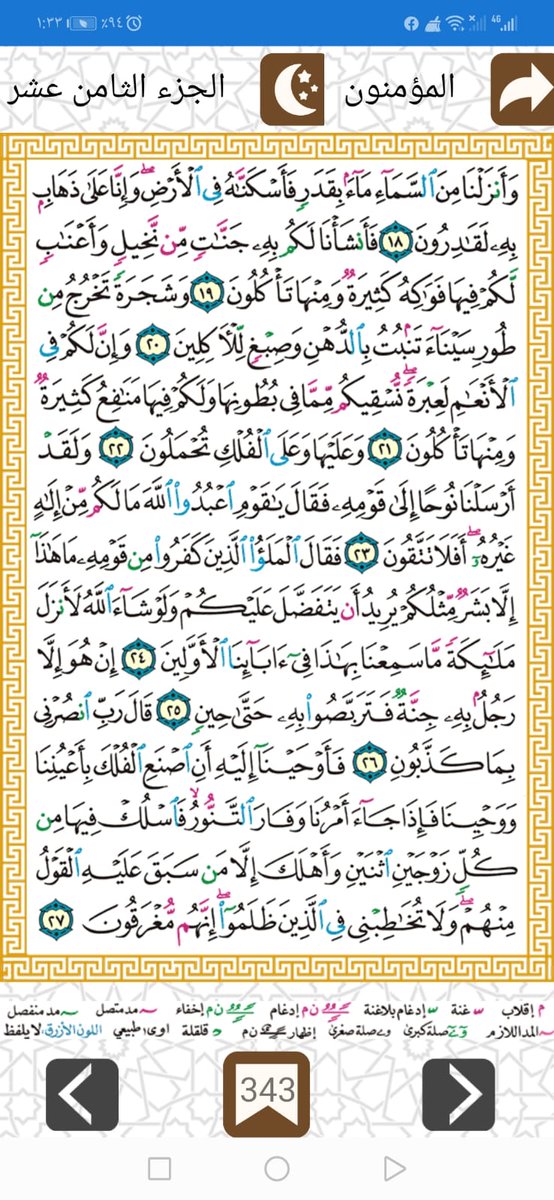 ١:٣٣ ٩٤٪ 4G
المؤمنون الجزء الثامن عشر
وَأَنزَلْنَا مِنَ ٱلسَّمَآءِ مَآءًۢ بِقَدَرٍ فَأَسْكَنَّـٰهُ فِى ٱلْأَرْضِ ۖ وَإِنَّا عَلَىٰ ذَهَابٍۭ
بِهِۦ لَقَـٰدِرُونَ ١٨ فَأَنشَأْنَا لَكُم بِهِۦ جَنَّـٰتٍ مِّن نَّخِيلٍ وَأَعْنَـٰبٍ
لَّكُمْ فِيهَا فَوَٰكِهُ كَثِيرَةٌ وَمِنْهَا تَأْكُلُونَ ١٩ وَشَجَرَةً تَخْرُجُ مِن
طُورِ سَيْنَآءَ تَنۢبُتُ بِٱلدُّهْنِ وَصِبْغٍ لِّلْـَٔاكِلِينَ ٢٠ وَإِنَّ لَكُمْ فِى
ٱلْأَنْعَـٰمِ لَعِبْرَةً ۖ نُّسْقِيكُم مِّمَّا فِى بُطُونِهَا وَلَكُمْ فِيهَا مَنَـٰفِعُ كَثِيرَةٌ
وَمِنْهَا تَأْكُلُونَ ٢١ وَعَلَيْهَا وَعَلَى ٱلْفُلْكِ تُحْمَلُونَ ٢٢ وَلَقَدْ
أَرْسَلْنَا نُوحًا إِلَىٰ قَوْمِهِۦ فَقَالَ يَـٰقَوْمِ ٱعْبُدُوا۟ ٱللَّهَ مَا لَكُم مِّنْ إِلَـٰهٍ
غَيْرُهُۥٓ ۖ أَفَلَا تَتَّقُونَ ٢٣ فَقَالَ ٱلْمَلَؤُا۟ ٱلَّذِينَ كَفَرُوا۟ مِن قَوْمِهِۦ مَا هَـٰذَآ
إِلَّا بَشَرٌ مِّثْلُكُمْ يُرِيدُ أَن يَتَفَضَّلَ عَلَيْكُمْ وَلَوْ شَآءَ ٱللَّهُ لَأَنزَلَ
مَلَـٰٓئِكَةً مَّا سَمِعْنَا بِهَـٰذَا فِىٓ ءَابَآئِنَا ٱلْأَوَّلِينَ ٢٤ إِنْ هُوَ إِلَّا
رَجُلٌۢ بِهِۦ جِنَّةٌ فَتَرَبَّصُوا۟ بِهِۦ حَتَّىٰ حِينٍ ٢٥ قَالَ رَبِّ ٱنصُرْنِى
بِمَا كَذَّبُونِ ٢٦ فَأَوْحَيْنَآ إِلَيْهِ أَنِ ٱصْنَعِ ٱلْفُلْكَ بِأَعْيُنِنَا
وَوَحْيِنَا فَإِذَا جَآءَ أَمْرُنَا وَفَارَ ٱلتَّنُّورُ ۙ فَٱسْلُكْ فِيهَا مِن
كُلٍّ زَوْجَيْنِ ٱثْنَيْنِ وَأَهْلَكَ إِلَّا مَن سَبَقَ عَلَيْهِ ٱلْقَوْلُ
مِنْهُمْ ۖ وَلَا تُخَـٰطِبْنِى فِى ٱلَّذِينَ ظَلَمُوٓا۟ ۖ إِنَّهُم مُّغْرَقُونَ ٢٧
م إقلاب غنة إدغام بلاغنة ن م إدغام ن م إخفاء مد متصل مد منفصل
المد اللازم صلة كبرى صلة صغرى إظهار ن م قلقلة اوى: طبيعي اللون الأزرق: لا يلفظ
343